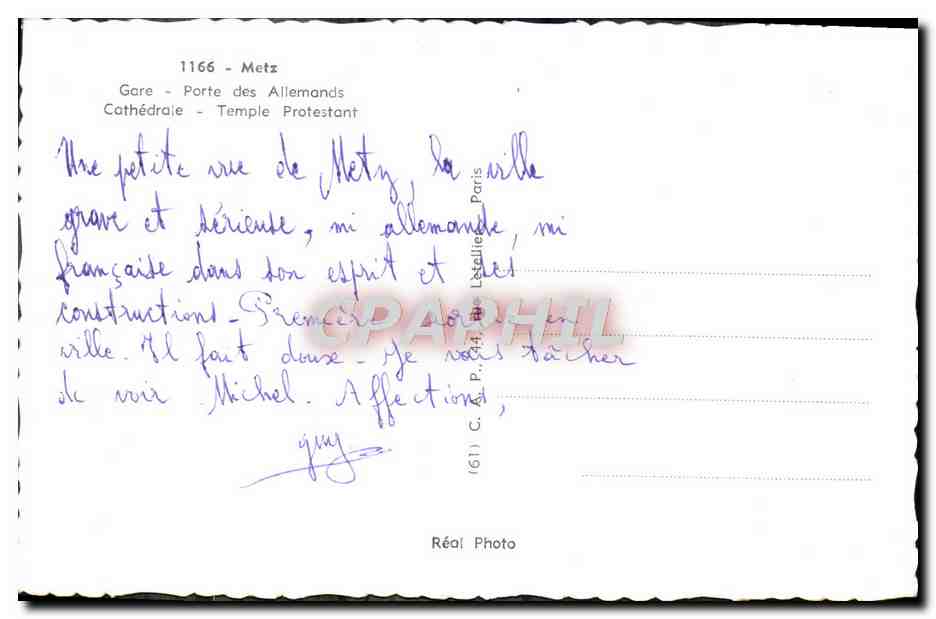 1166 - Metz
Gare - Porte des Allemands
Cathédrale - Temple Protestant
Une petite vue de Metz, la ville
grave et sérieuse, mi allemande, mi
française dans son esprit et ses
constructions - Première sortie en
ville. Il fait doux - Je vais tâcher
de voir Michel. Affections,
guy
(61) C. A. P., 44, Rue Letellier - Paris
CPAPHIL
Réal Photo